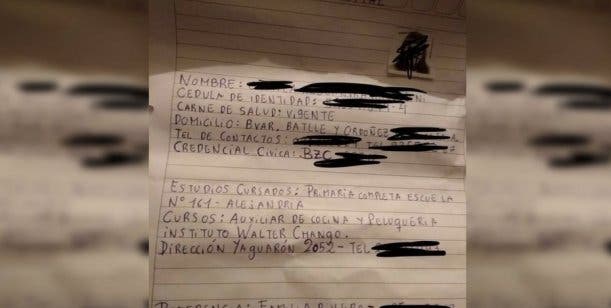 NOMBRE:
CEDULA DE IDENTIDAD:
CARNE DE SALUD: VIGENTE
DOMICILIO: BVAR. BATLLE Y ORDOÑEZ
TEL DE CONTACTOS: TEL
CREDENCIAL CIVICA: BZC
ESTUDIOS CURSADOS: PRIMARIA COMPLETA ESCUELA
Nº 161 - ALEJANDRIA
CURSOS: AUXILIAR DE COCINA Y PELUQUERIA
INSTITUTO WALTER CHANGO.
DIRECCIÓN YAGUARÓN 2052 - TEL